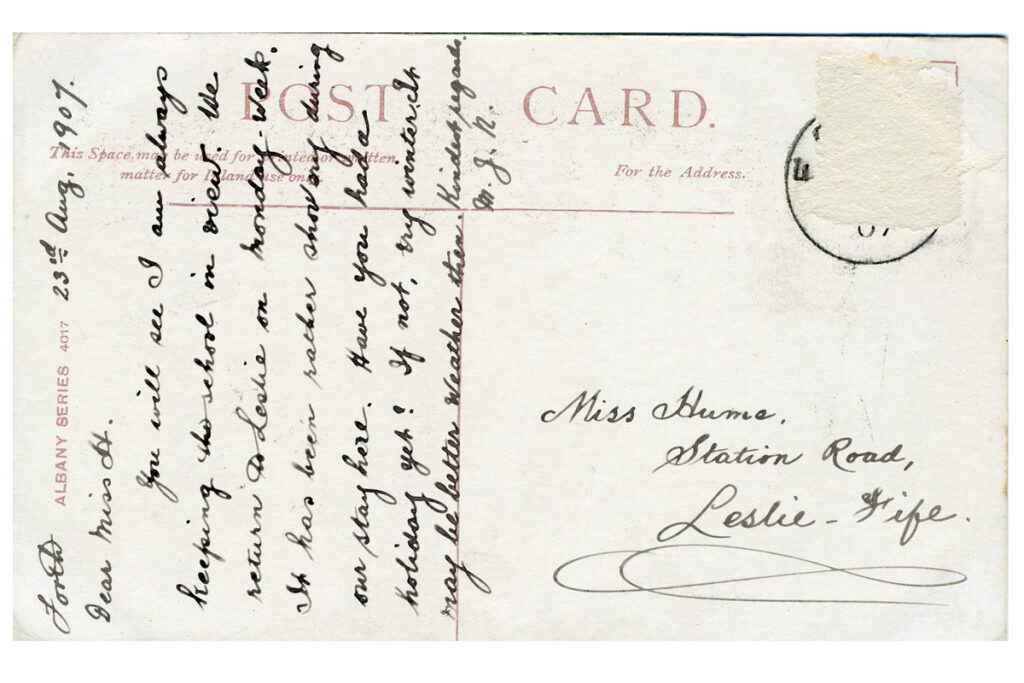 POST CARD.
This Space may be used for printed or written
matter for Inland use only
For the Address.
ALBANY SERIES 4017
23rd Aug. 1907.
Dear Miss H.
You will see I am always
keeping the school in view. We
return to Leslie on Monday-week.
It has been rather showery during
our stay here. Have you had a
holiday yet? If not, try winter. It
may be better weather then. Kindest regards.
M. J. R.
Miss Hume.
Station Road,
Leslie - Fife.
07